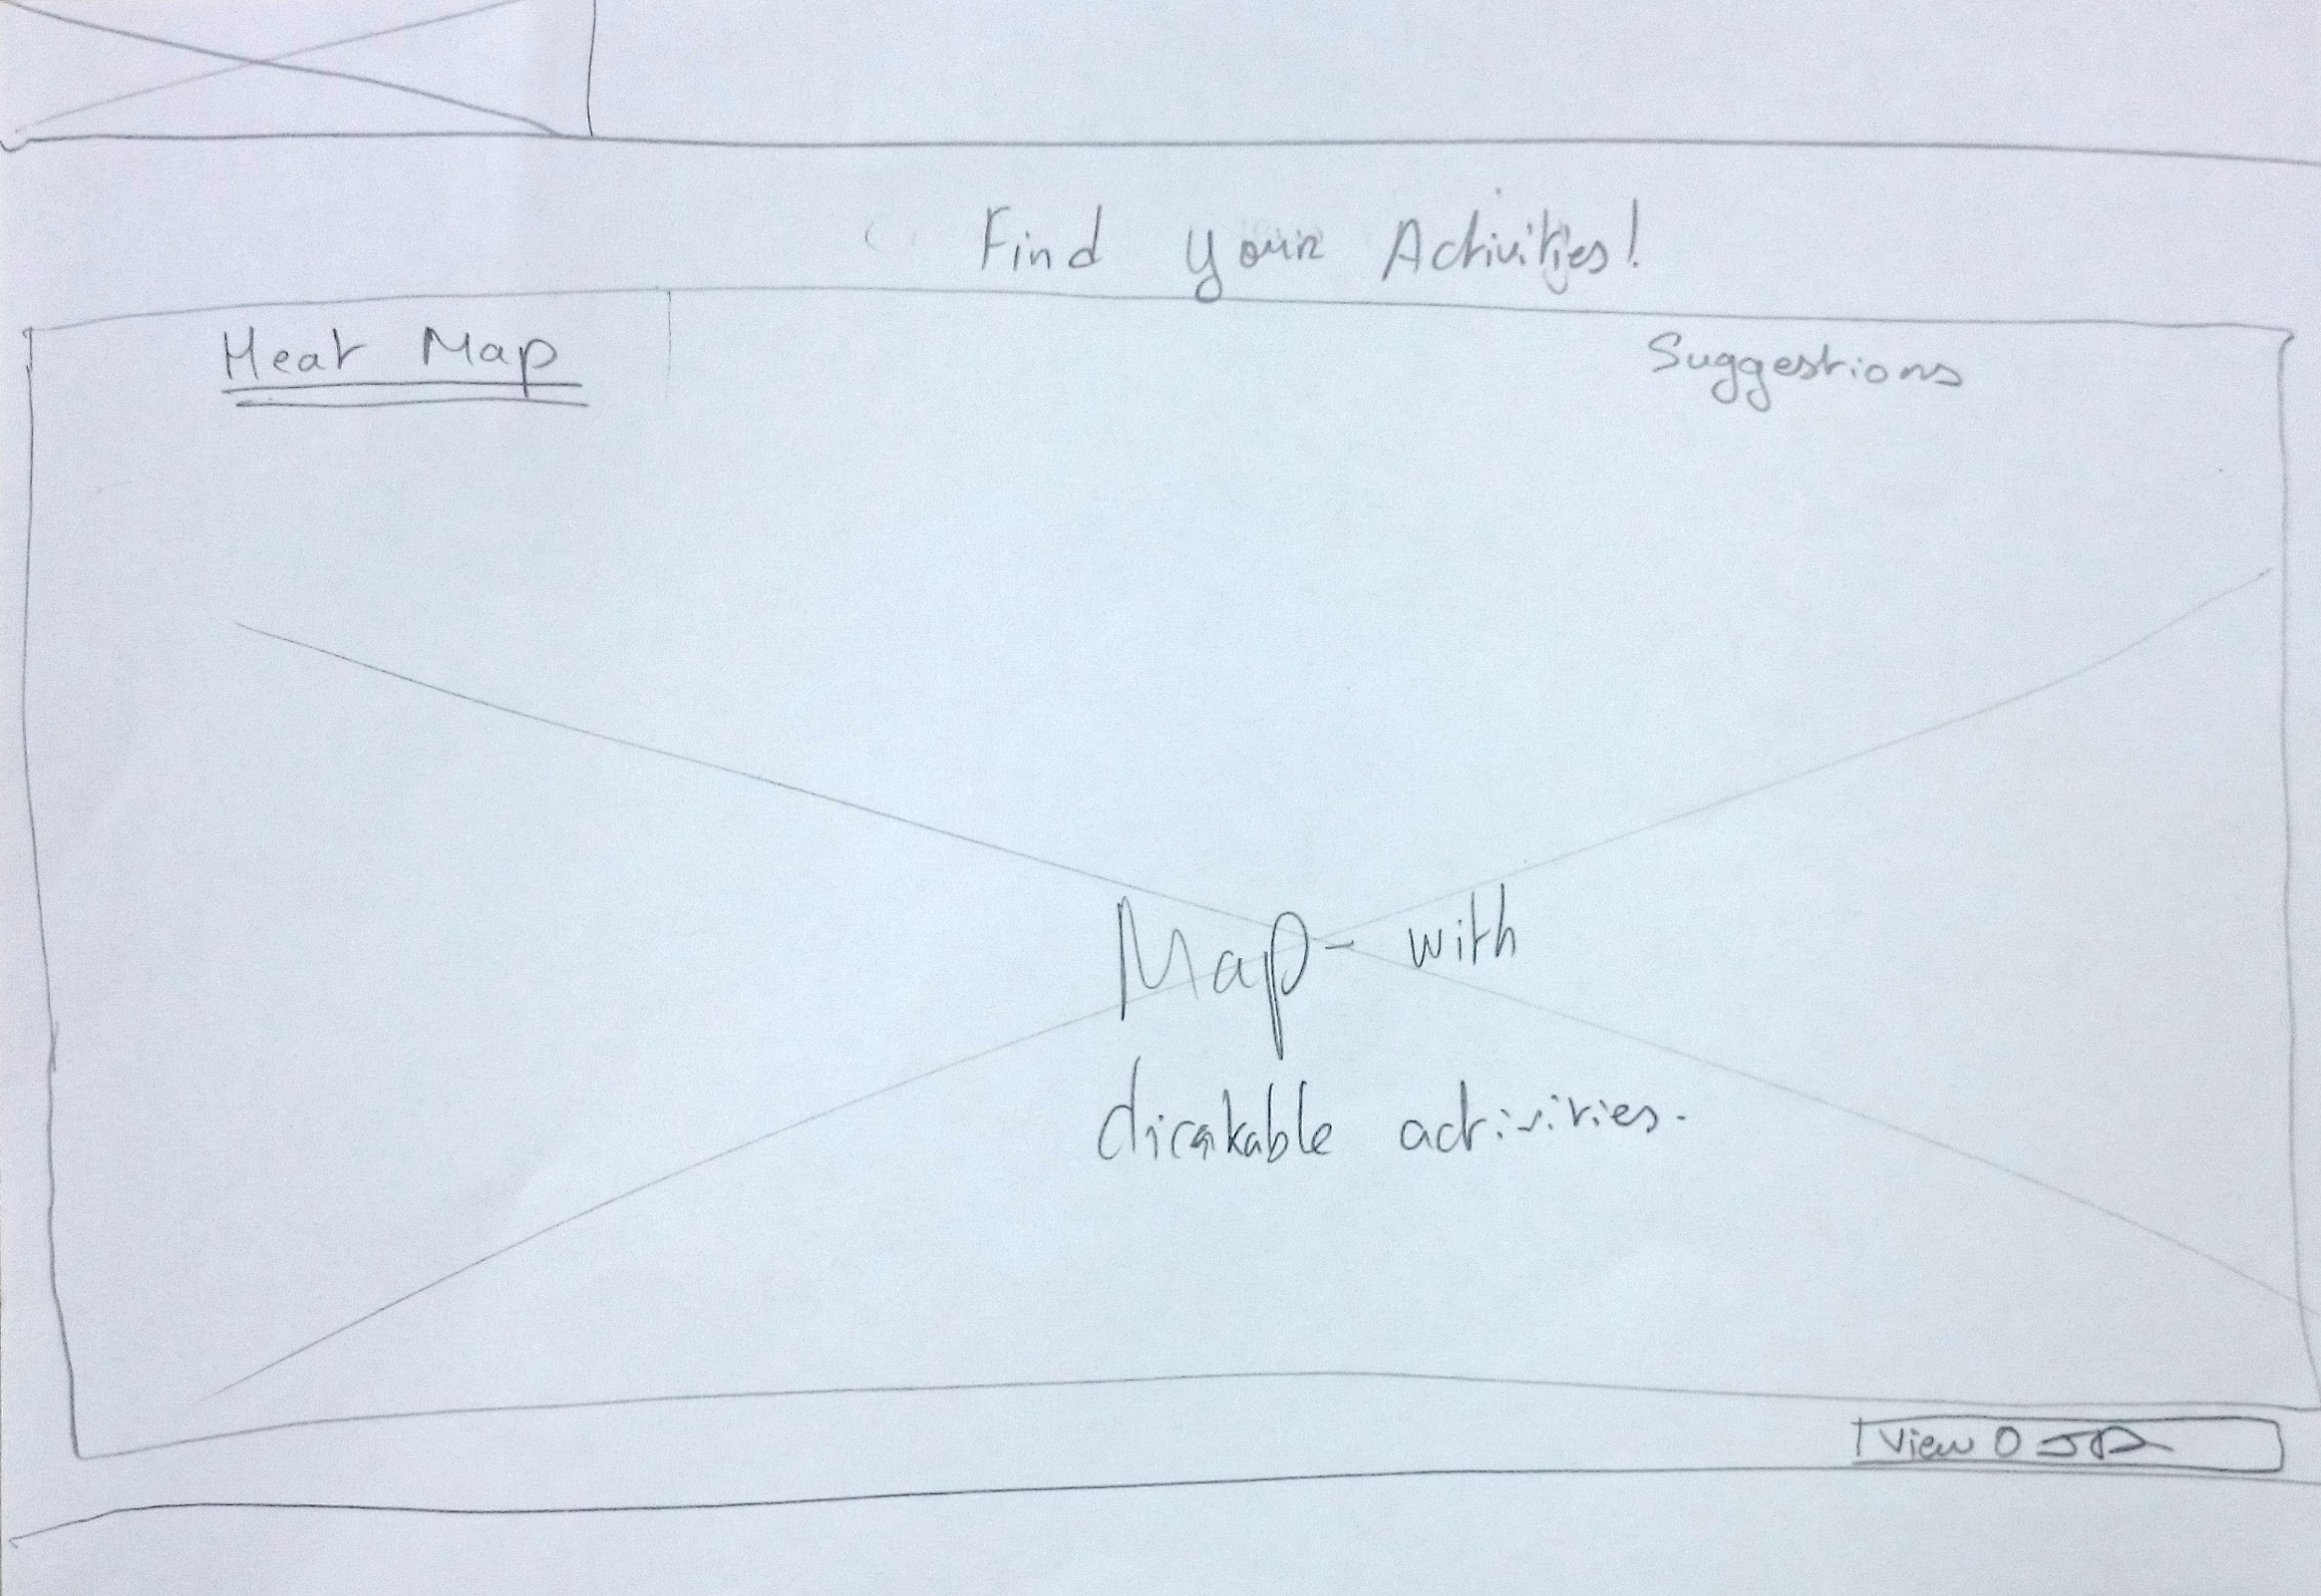 Find Your Activities!
Heat Map
Suggestions
Map - with
clickable activities.
View